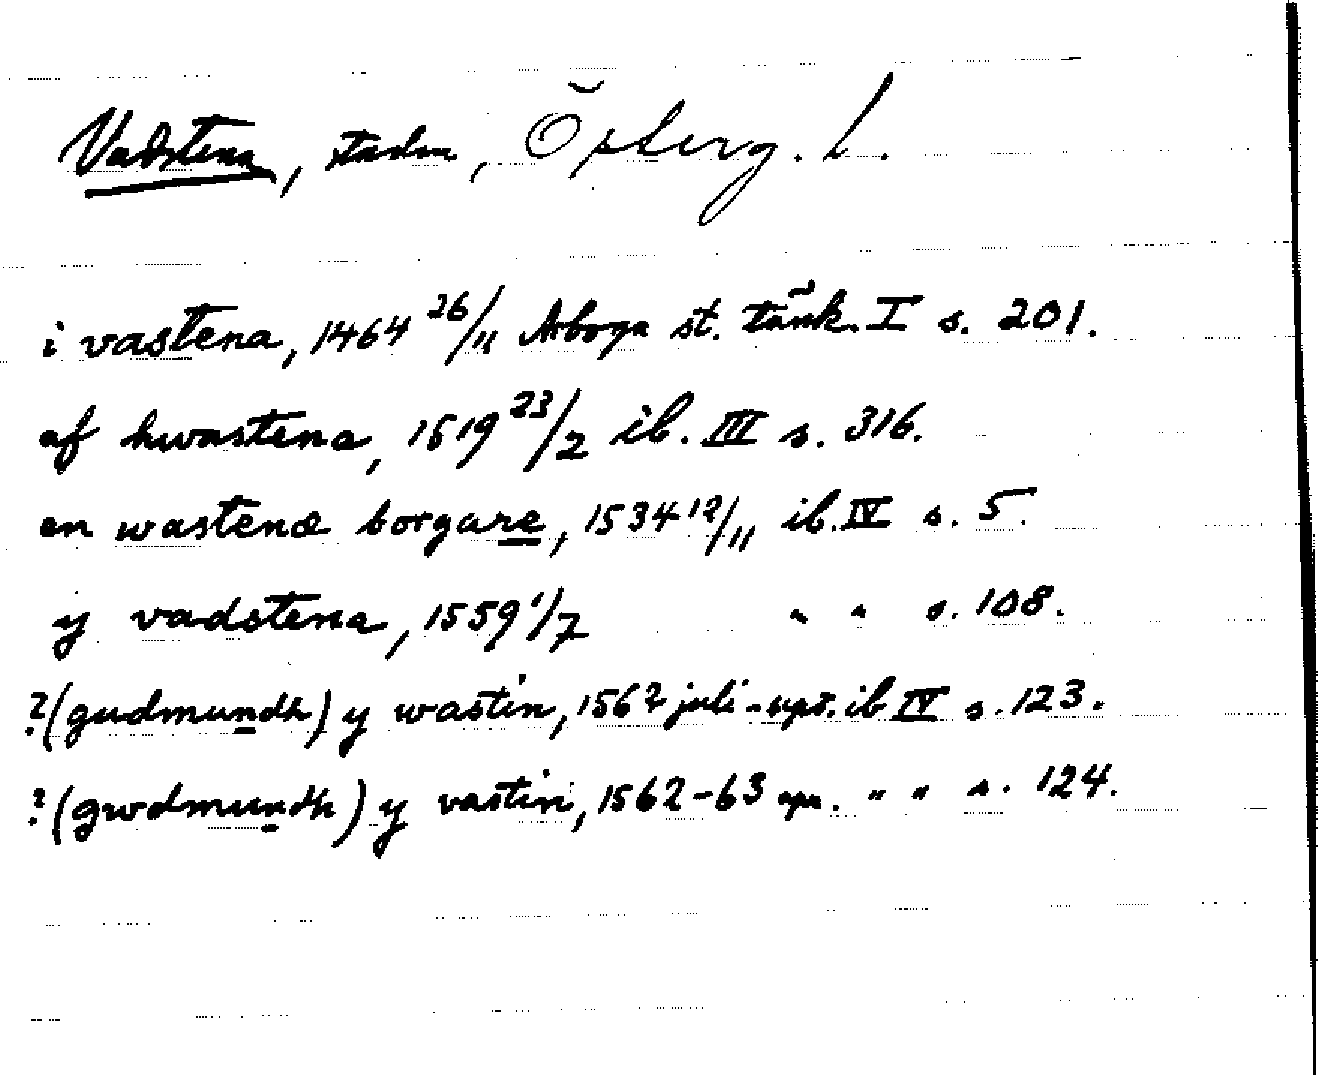 Vadstena, staden, Österg. L.
i vastena, 1464 26/11 Arboga st. tänk. I s. 201.
af hwastena, 1519 23/2 ib. III s. 316.
en wastenæ borgare, 1534 12/11 ib. IV s. 5.
y vadstena, 1559 1/7 " " s. 108.
?(gudmundh) y wastin, 1562 juli- ib IV s. 123.
?(gwdmundh) y vastin, 1562-63 " " s. 124.